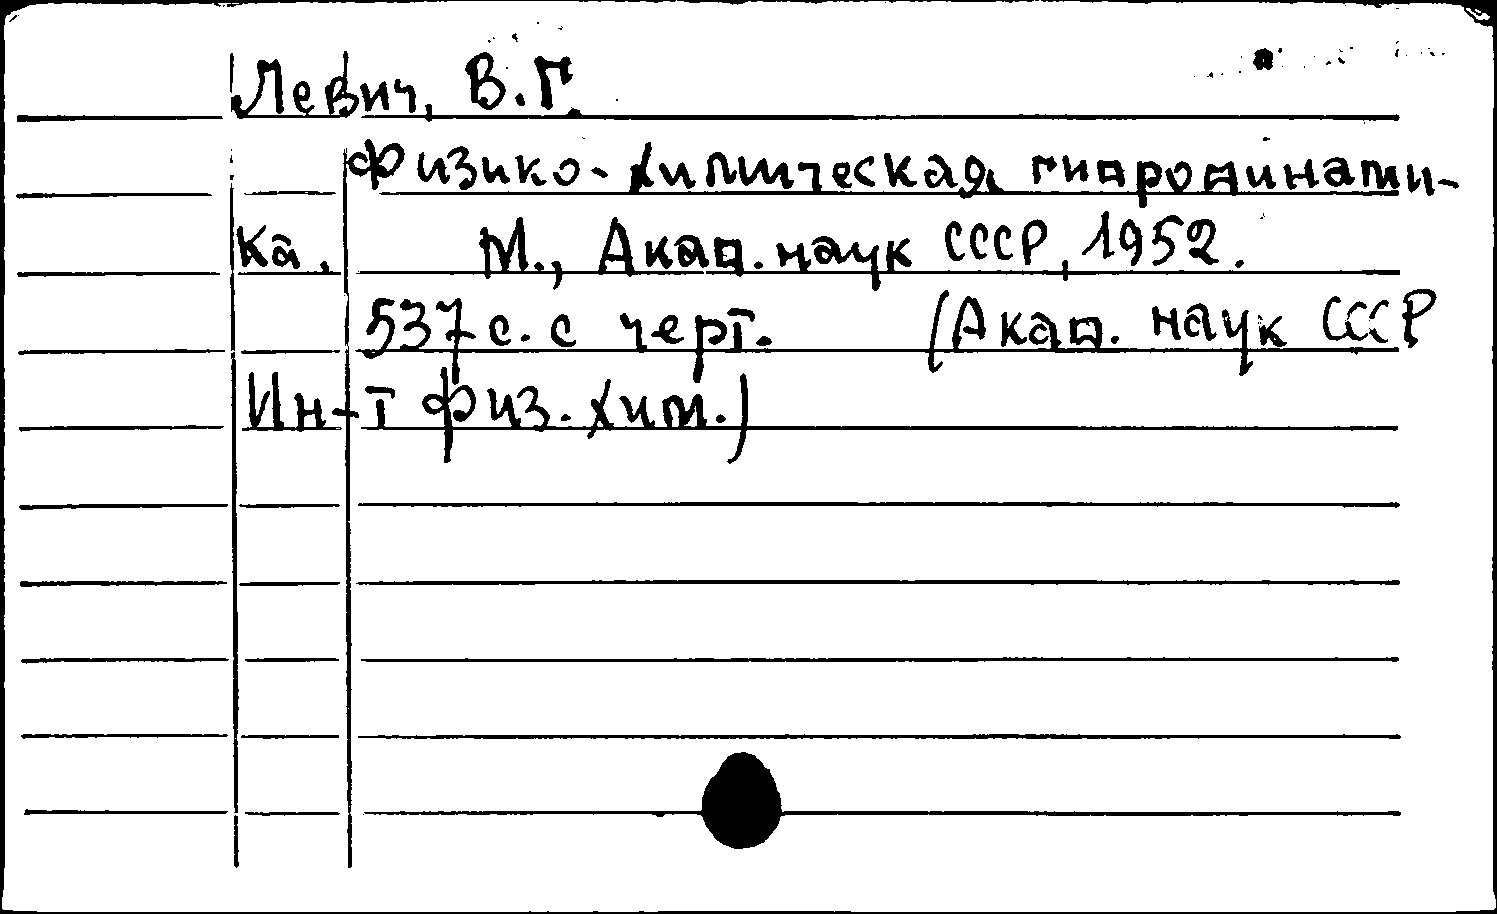 Левич, В.Г.
Физико-химическая гидродинами-
ка. М., Акад. наук СССР, 1952.
537 с. с черт. (Акад. наук СССР
Ин-т физ. хим.)